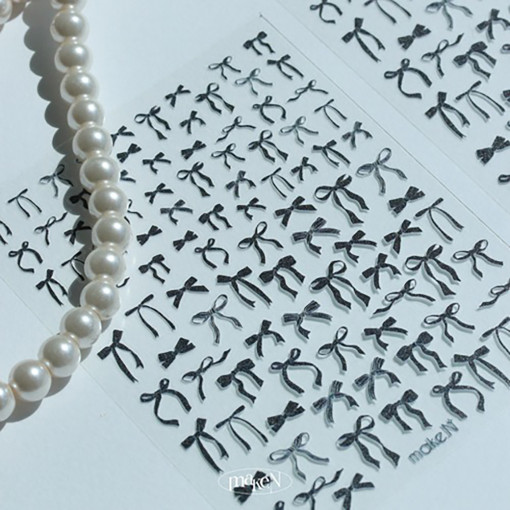 make.N
makeN